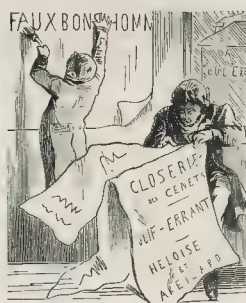 FAUX BONSHOMM
CLOSERIE
DES GENETS
JUIF-ERRANT
HELOISE
ET
ABEILARD